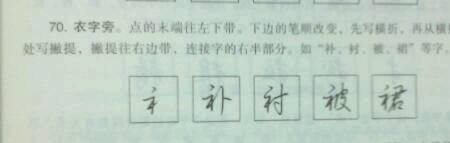 70. 衣字旁。点的末端往左下带。下边的笔顺改变，先写横折，再从横
处写撇提，撇提往右边带，连接字的右半部分。如“补、衬、被、裙”等字。
衤 补 衬 被 裙